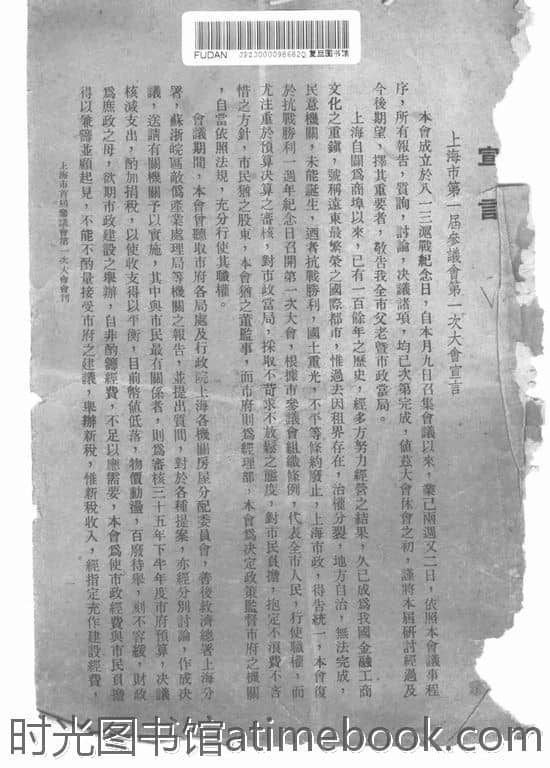 FUDAN JP200000966820 复旦图书馆
宣言
上海市第一屆參議會第一次大會宣言
本會成立於八一三滬戰紀念日，自本月九日召集會議以來，業已兩週又二日，依照本會議事程
序，所有報告，質詢，討論，決議諸項，均已次第完成，値茲大會休會之初，謹將本屆研討經過及
今後期望，擇其重要者，敬告我全市父老暨市政當局。
上海自闢爲商埠以來，已有一百餘年之歷史，經多方努力經營之結果，久已成爲我國金融工商
文化之重鎭，號稱遠東最繁榮之國際都市，惟過去因租界存在，治權分裂，地方自治，無法完成，
民意機關，未能誕生，迺者抗戰勝利，國土重光，不平等條約廢止，上海市政，得告統一，本會復
於抗戰勝利一週年紀念日召開第一次大會，根據市參議會組織條例，代表全市人民，行使職權，而
尤注重於預算決算之審核，對市政當局，採取不苛求不放鬆之態度，對市民負擔，抱定不浪費不吝
惜之方針，市民猶之股東，本會猶之董監事，而市府則爲經理部，本會爲決定政策監督市府之機關
，自當依照法規，充分行使其職權。
會議期間，本會曾聽取市府各局處及行政院上海各機關房屋分配委員會，善後救濟總署上海分
署，蘇浙皖區敵僞產業處理局等機關之報告，並提出質問，對於各種提案，亦經分別討論，作成決
議，送請有關機關予以實施，其中與市民最有關係者，則爲審核三十五年下半年度市府預算，決議
核減支出，酌加捐稅，以使收支得以平衡，目前幣値低落，物價動盪，百廢待舉，刻不容緩，財政
爲庶政之母，欲期市政建設之舉辦，自非酌籌經費，不足以應需要，本會爲使市政經費與市民負擔
得以兼籌並顧起見，不能不酌量接受市府之建議，舉辦新稅，惟新稅收入，經指定充作建設經費，
上海市首屆參議會第一次大會會刊
时光图书馆atimebook.com